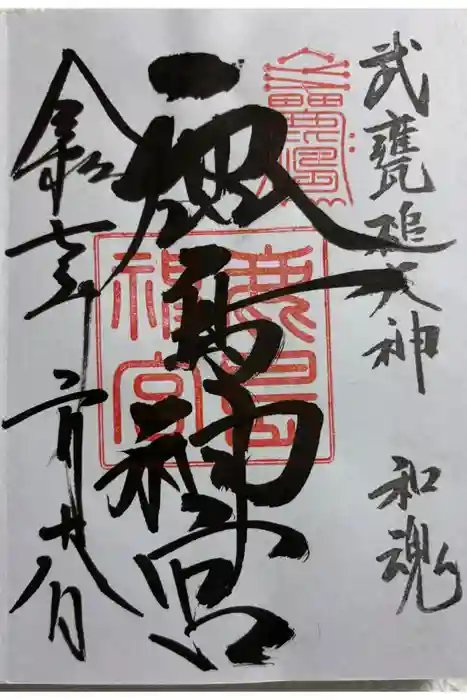 武甕槌大神 和魂
鹿島神宮
鹿島神宮
令和七年 二月廿八日